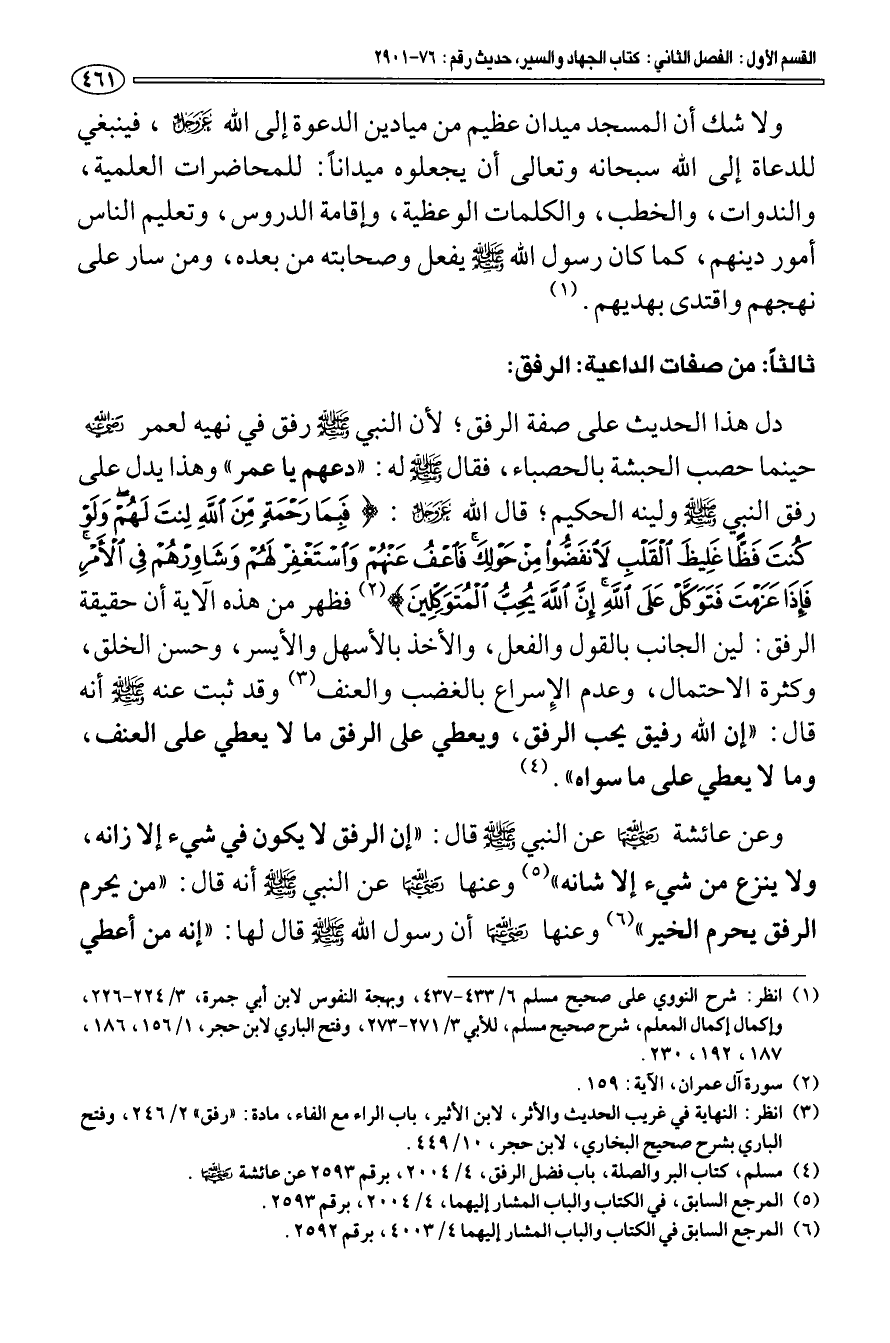 القسم الأول: الفصل الثاني: كتاب الجهاد والسير، حديث رقم: ٧٦-٢٩٠١
٤٦١
ولا شك أن المسجد ميدان عظيم من ميادين الدعوة إلى الله عز وجل ، فينبغي
للدعاة إلى الله سبحانه وتعالى أن يجعلوه ميداناً: للمحاضرات العلمية،
والندوات، والخطب، والكلمات الوعظية، وإقامة الدروس، وتعليم الناس
أمور دينهم، كما كان رسول الله ﷺ يفعل وصحابته من بعده، ومن سار على
نهجهم واقتدى بهديهم. (١)
ثالثاً: من صفات الداعية: الرفق:
دل هذا الحديث على صفة الرفق؛ لأن النبي ﷺ رفق في نهيه لعمر رضي الله عنه
حينما حصب الحبشة بالحصباء، فقال ﷺ له: «دعهم يا عمر» وهذا يدل على
رفق النبي ﷺ ولينه الحكيم؛ قال الله عز وجل : ﴿ فَبِمَا رَحْمَةٍ مِّنَ ٱللَّهِ لِنتَ لَهُمْ ۖ وَلَوْ
كُنتَ فَظًّا غَلِيظَ ٱلْقَلْبِ لَٱنفَضُّوا۟ مِنْ حَوْلِكَ ۖ فَٱعْفُ عَنْهُمْ وَٱسْتَغْفِرْ لَهُمْ وَشَاوِرْهُمْ فِى ٱلْأَمْرِ ۖ
فَإِذَا عَزَمْتَ فَتَوَكَّلْ عَلَى ٱللَّهِ ۚ إِنَّ ٱللَّهَ يُحِبُّ ٱلْمُتَوَكِّلِينَ ﴾(٢) فظهر من هذه الآية أن حقيقة
الرفق: لين الجانب بالقول والفعل، والأخذ بالأسهل والأيسر، وحسن الخلق،
وكثرة الاحتمال، وعدم الإسراع بالغضب والعنف(٣) وقد ثبت عنه ﷺ أنه
قال: «إن الله رفيق يحب الرفق، ويعطي على الرفق ما لا يعطي على العنف،
وما لا يعطي على ما سواه». (٤)
وعن عائشة رضي الله عنها عن النبي ﷺ قال: «إن الرفق لا يكون في شيء إلا زانه،
ولا ينزع من شيء إلا شانه»(٥) وعنها رضي الله عنها عن النبي ﷺ أنه قال: «من يحرم
الرفق يحرم الخير»(٦) وعنها رضي الله عنها أن رسول الله ﷺ قال لها: «إنه من أعطي
(١) انظر: شرح النووي على صحيح مسلم ٦/ ٤٣٣-٤٣٧، وبهجة النفوس لابن أبي جمرة، ٣/ ٢٢٤-٢٢٦،
وإكمال إكمال المعلم، شرح صحيح مسلم، للأبي ٣/ ٢٧١-٢٧٣، وفتح الباري لابن حجر، ١/ ١٥٦، ١٨٦،
١٨٧، ١٩٢، ٢٣٠.
(٢) سورة آل عمران، الآية: ١٥٩.
(٣) انظر: النهاية في غريب الحديث والأثر، لابن الأثير، باب الراء مع الفاء، مادة: «رفق» ٢/ ٢٤٦، وفتح
الباري بشرح صحيح البخاري، لابن حجر، ١٠/ ٤٤٩.
(٤) مسلم، كتاب البر والصلة، باب فضل الرفق، ٤/ ٢٠٠٤، برقم ٢٥٩٣ عن عائشة رضي الله عنها.
(٥) المرجع السابق، في الكتاب والباب المشار إليهما، ٤/ ٢٠٠٤، برقم ٢٥٩٣.
(٦) المرجع السابق في الكتاب والباب المشار إليهما ٤/ ٤٠٠٣، برقم ٢٥٩٢.